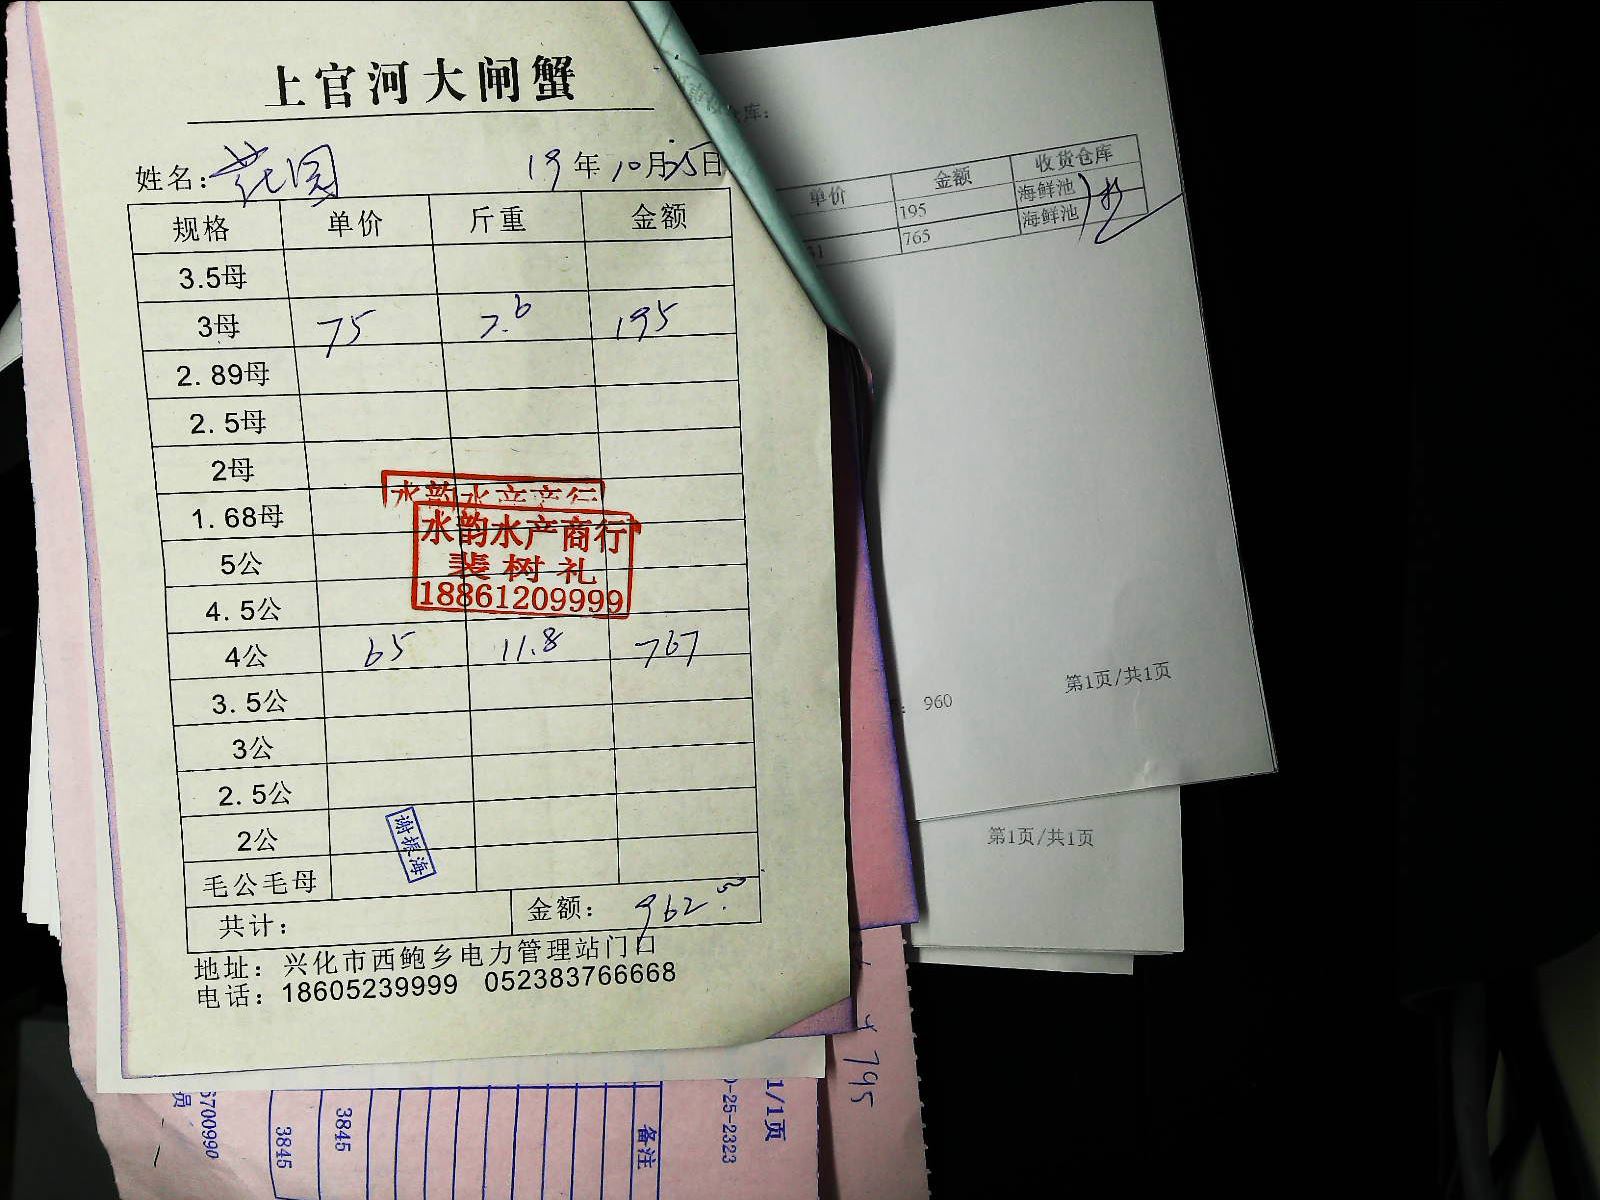 上官河大闸蟹
姓名：花园 19年10月25日
规格 单价 斤重 金额
3.5母
3母 75 2.6 195
2.89母
2.5母
2母
1.68母
5公
4.5公
4公 65 11.8 767
3.5公
3公
2.5公
2公
毛公毛母
共计： 金额： 962.
地址：兴化市西鲍乡电力管理站门口
电话：18605239999 052383766668
水韵水产商行
水韵水产商行
裴树礼
18861209999
谢振海
仓库：
单价 金额 收货仓库
195 海鲜池
765 海鲜池
960
第1页/共1页
第1页/共1页
795
1/1页
-25-2323
备注
3845
3845
6700990
员